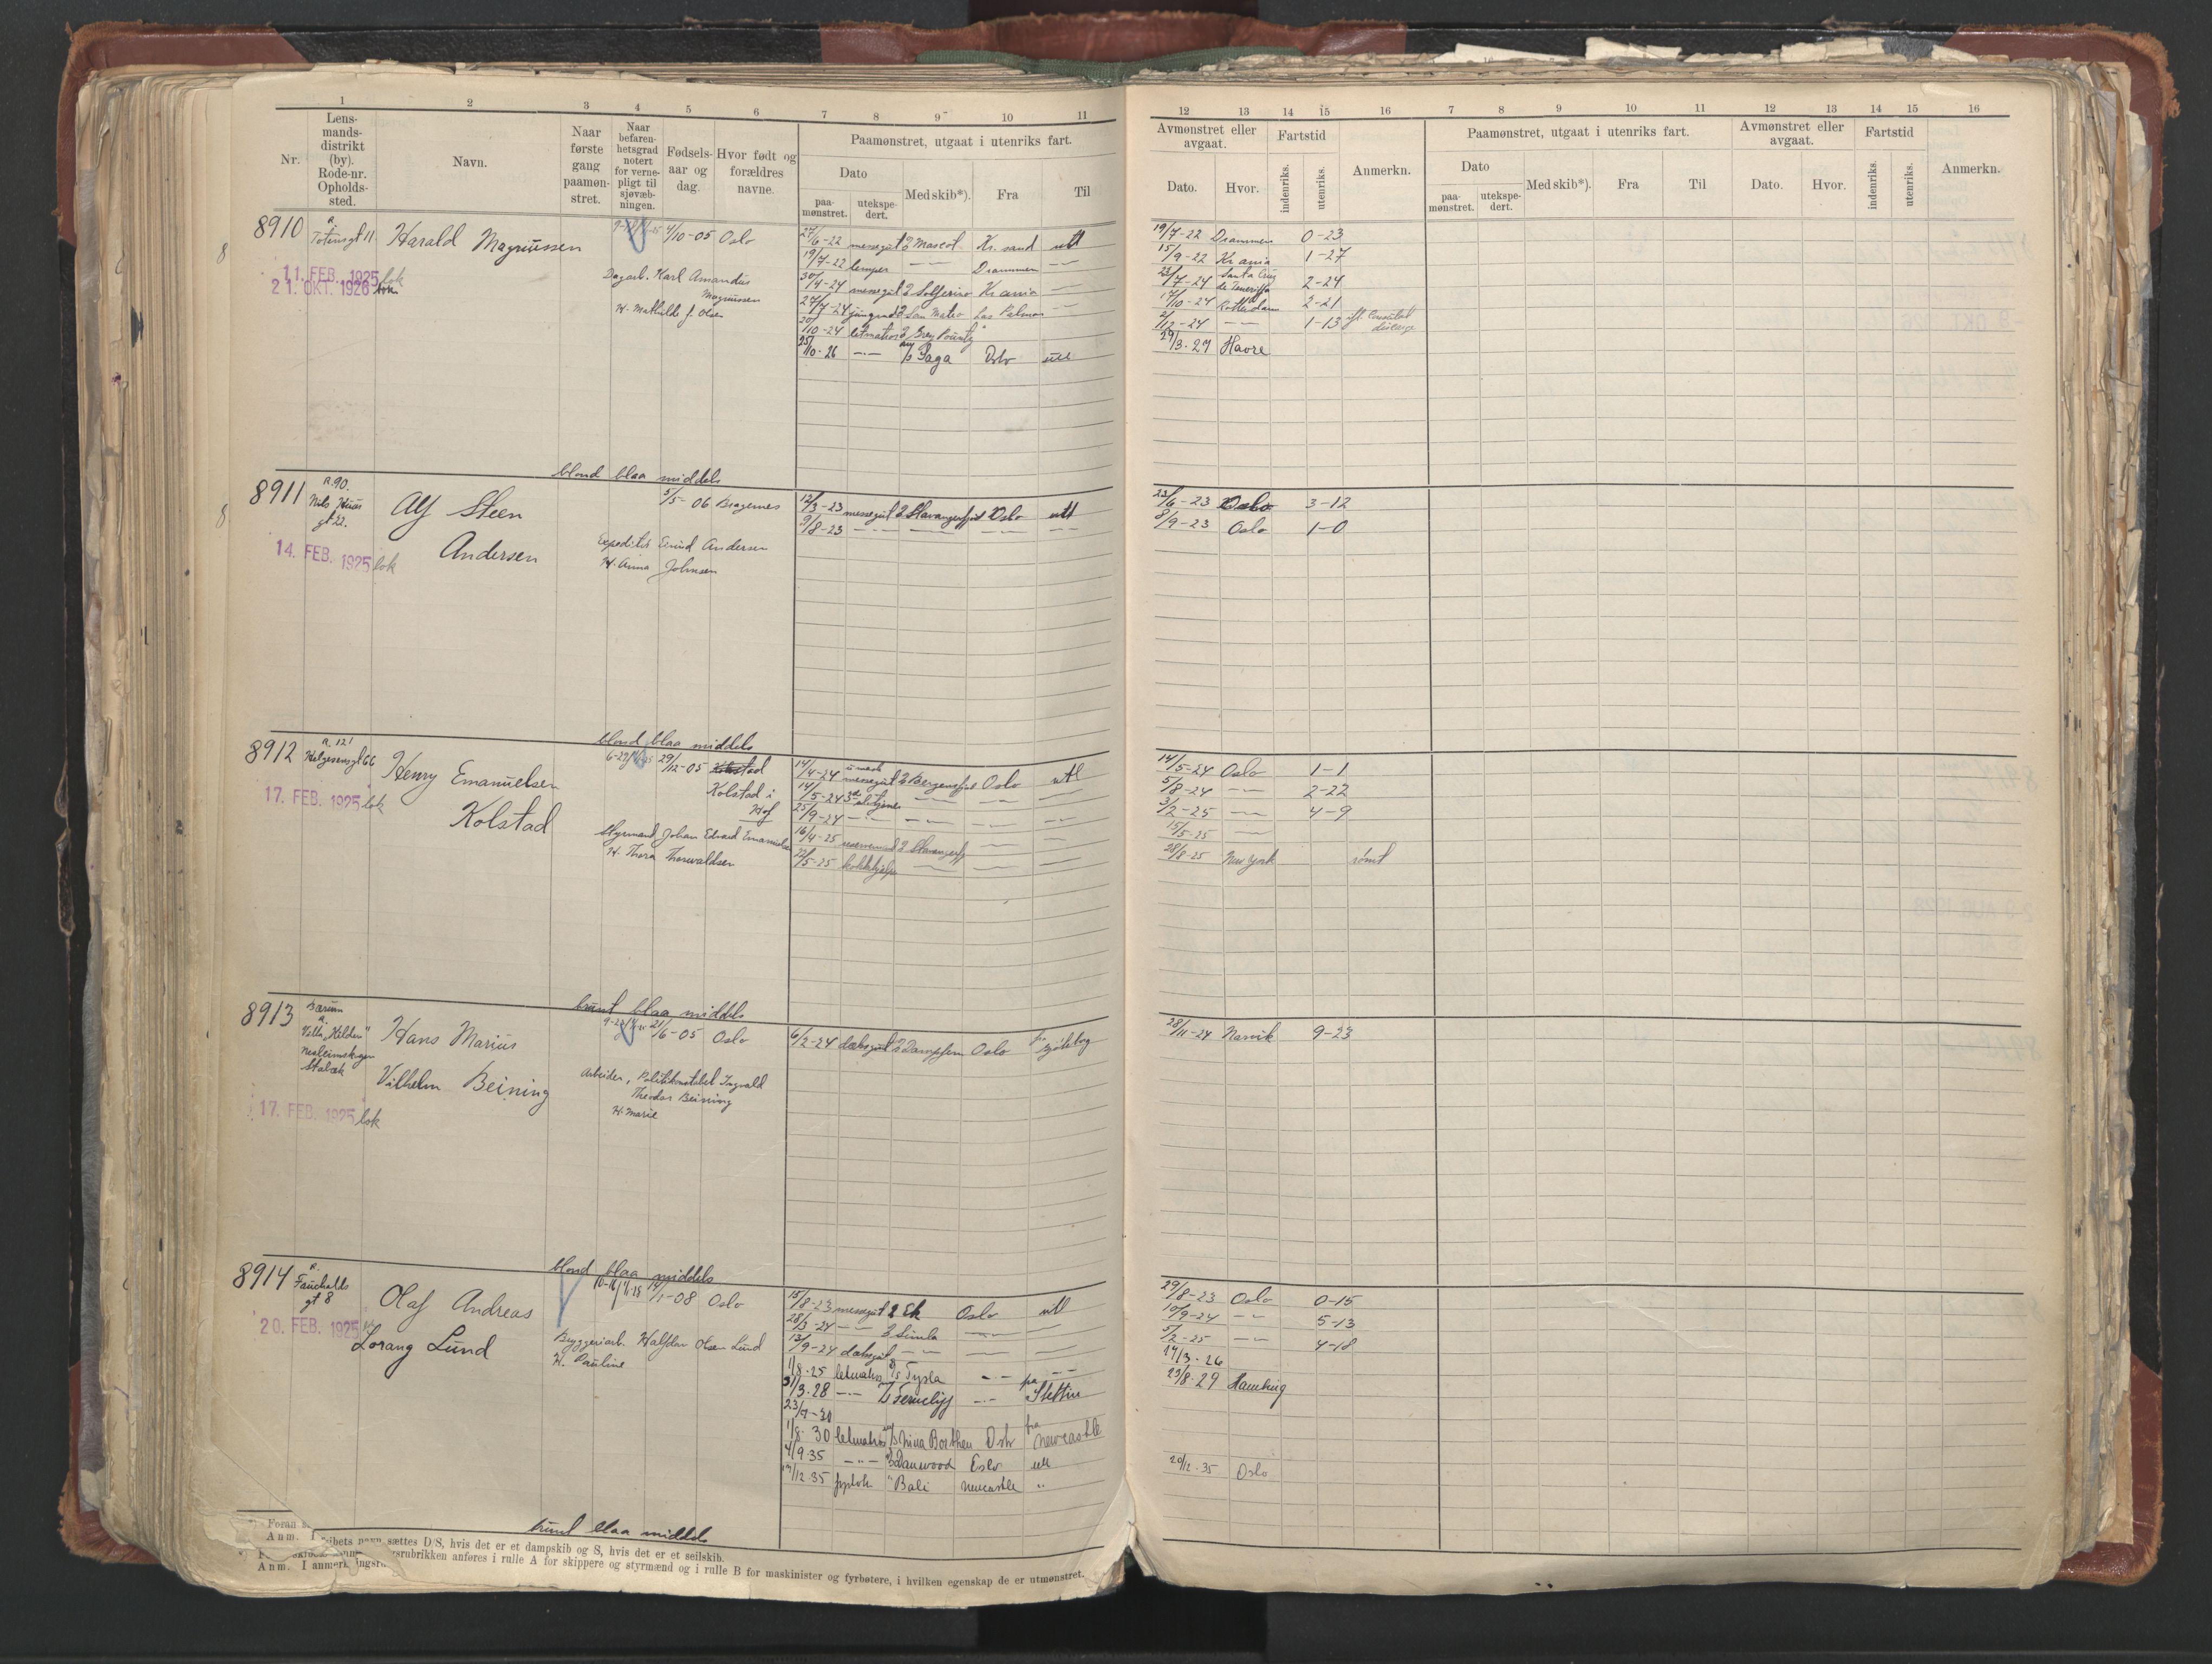 1 2 3 4 5 6 7 8 9 10 11
Nr.
Lens-
mands-
distrikt
(by).
Rode-nr.
Opholds-
sted.
Navn.
Naar
første
gang
paamøn-
stret.
Naar
befaren-
hetsgrad
notert
for verne-
pligt til
sjøvæb-
ningen.
Fødsels-
aar og
dag.
Hvor født og
forældres
navne.
Paamønstret, utgaat i utenriks fart.
Dato
paa-
mønstret.
utekspe-
dert.
Med skib*).
Fra
Til
12 13 14 15 16 7 8 9 10 11 12 13 14 15 16
Avmønstret eller
avgaat.
Dato.
Hvor.
Fartstid
indenriks.
utenriks.
Anmerkn.
Paamønstret, utgaat i utenriks fart.
Dato
paa-
mønstret.
utekspe-
dert.
Med skib*).
Fra
Til
Avmønstret eller
avgaat.
Dato.
Hvor.
Fartstid
indenriks.
utenriks.
Anmerkn.
8910
Totensgt 11
Harald Magnussen
4/10-05 Oslo
11. FEB. 1925 lok
21. OKT. 1926
Dagarb. Karl Amandus
Magnussen
H. Mathilde J. Olsen
27/6-22 messegut Mascot Kr. sand utl
19/7-22 lemper —〃— Drammen —〃—
30/4-24 messegut Solferino Kr ania —〃—
27/7-24 jungmd San Mateo Las Palmas —〃—
20/10-24 letmatros Grey County
25/10-26 —〃— Saga Oslo utl
19/7-22 Drammen 0-23
15/9-22 Kr ania 1-27
23/7-24 Santa Cruz
de Teneriffa 2-24
17/10-24 Rotterdam 2-21
2/12-24 —〃— 1-13
29/3-27 Havre
blond blaa middels
8911
R.90.
Nils Huus
gt 22.
Alf Steen
Andersen
5/5-06 Bragernes
14. FEB. 1925 lok
Expeditør Emund Andersen
H. Anna Johnsen
12/3-23 messegut Stavangerfjord Oslo utl
9/8-23 —〃— —〃— —〃— —〃—
23/6-23 Oslo 3-12
8/9-23 Oslo 1-0
blond blaa middels
8912
R. 121
Helgesensgt 66
Henry Emanuelsen
Kolstad
29/12-05
Kolstad i
Hof
17. FEB. 1925 lok
Styrmand Johan Edvard Emanuelsen
H. Thora Thorvaldsen
14/4-24 messegut Bergensfjord Oslo utl
14/5-24 —〃— —〃— —〃—
25/9-24 —〃— —〃— —〃— —〃—
16/4-25 Stavangerfj —〃—
22/5-25 kokkhjelper —〃— —〃— —〃—
14/5-24 Oslo 1-1
5/8-24 —〃— 2-22
3/2-25 —〃— 4-9
15/5-25 —〃—
28/8-25 New York rømt
brunt blaa middels
8913
Bærum
R.
Villa "Kilden"
Stabæk
Hans Marius
Vilhelm Beining
21/6-05 Oslo
17. FEB. 1925 lok
Arbeider, Politikonstabel Ingvald
Theodor Beining
H. Marie
6/2-24 dæksgut Dampfem Oslo
28/11-24 Narvik 9-23
blond blaa middels
8914
R.
Fauchalds
gt 8
Olaf Andreas
Lorang Lund
10-16/11-18 14/1-08 Oslo
20. FEB. 1925
Bryggeriarb. Halfdan Olsen Lund
H. Pauline
15/8-23 messegut Ek Oslo utl
28/3-24 —〃— Simla —〃— —〃—
13/9-24 dæksgut —〃— —〃— —〃—
1/8-25 letmatros Tysla —〃— —〃—
31/3-28 —〃— Ferncliff —〃— fra Stettin
23/7-30
1/8-30 letmatros Nina Borthen Oslo fra Newcastle
4/9-35 —〃— Danwood Oslo utl
17/12-35 fyrbøt " Bali Newcastle "
29/8-23 Oslo 0-15
10/9-24 —〃— 5-13
5/2-25 —〃— 4-18
17/3-26
23/8-29 Hamburg
20/12-35 Oslo
brunt blaa middels
Foran s
Anm. I
ibets navn sættes D/S, hvis det er et dampskib og S, hvis det er et seilskib.
Anm. I anmerkningsrubrikken anføres i rulle A for skippere og styrmænd og i rulle B for maskinister og fyrbøtere, i hvilken egenskap de er utmønstret.